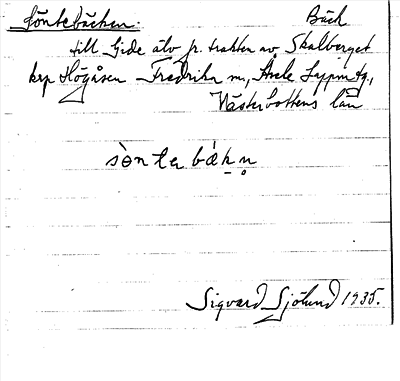 Söntebäcken: Bäck
till Gide älv fr. trakten av Skalberget
krp Högåsen Fredrika sn, Åsele Lappm tg.,
Västerbottens län
sòntəbäkn̥
Sigvard Sjölund 1935.